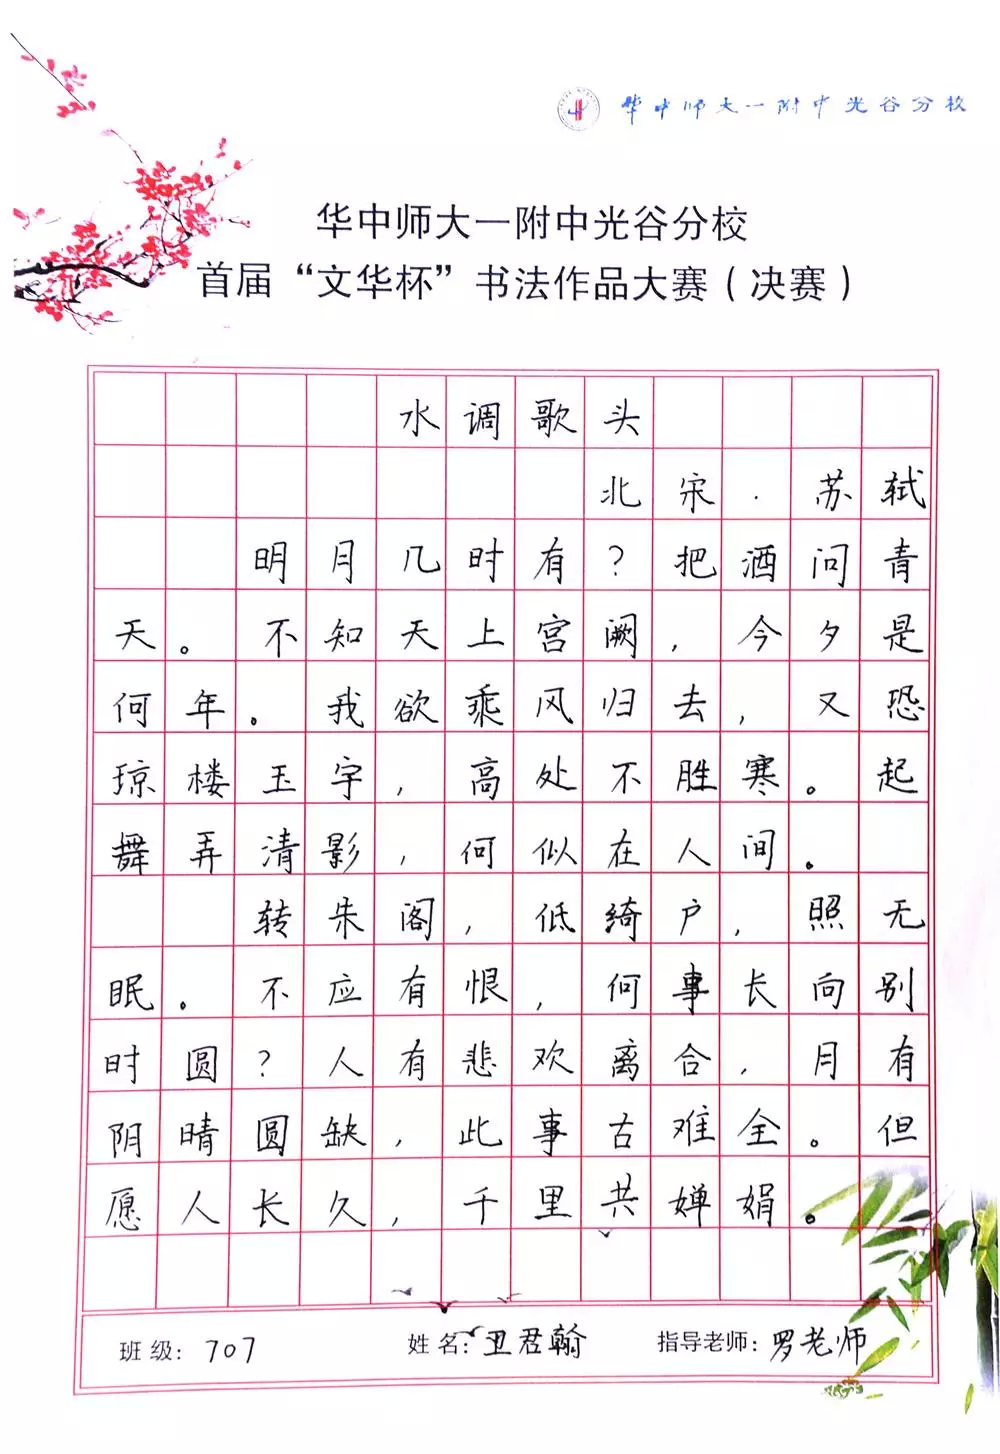 华中师大一附中光谷分校
华中师大一附中光谷分校
首届“文华杯”书法作品大赛(决赛)
水调歌头
北宋·苏轼
明月几时有?把酒问青
天。不知天上宫阙,今夕是
何年。我欲乘风归去,又恐
琼楼玉宇,高处不胜寒。起
舞弄清影,何似在人间。
转朱阁,低绮户,照无
眠。不应有恨,何事长向别
时圆?人有悲欢离合,月有
阴晴圆缺,此事古难全。但
愿人长久,千里共婵娟。
班级:707 姓名:丑君翰 指导老师:罗老师